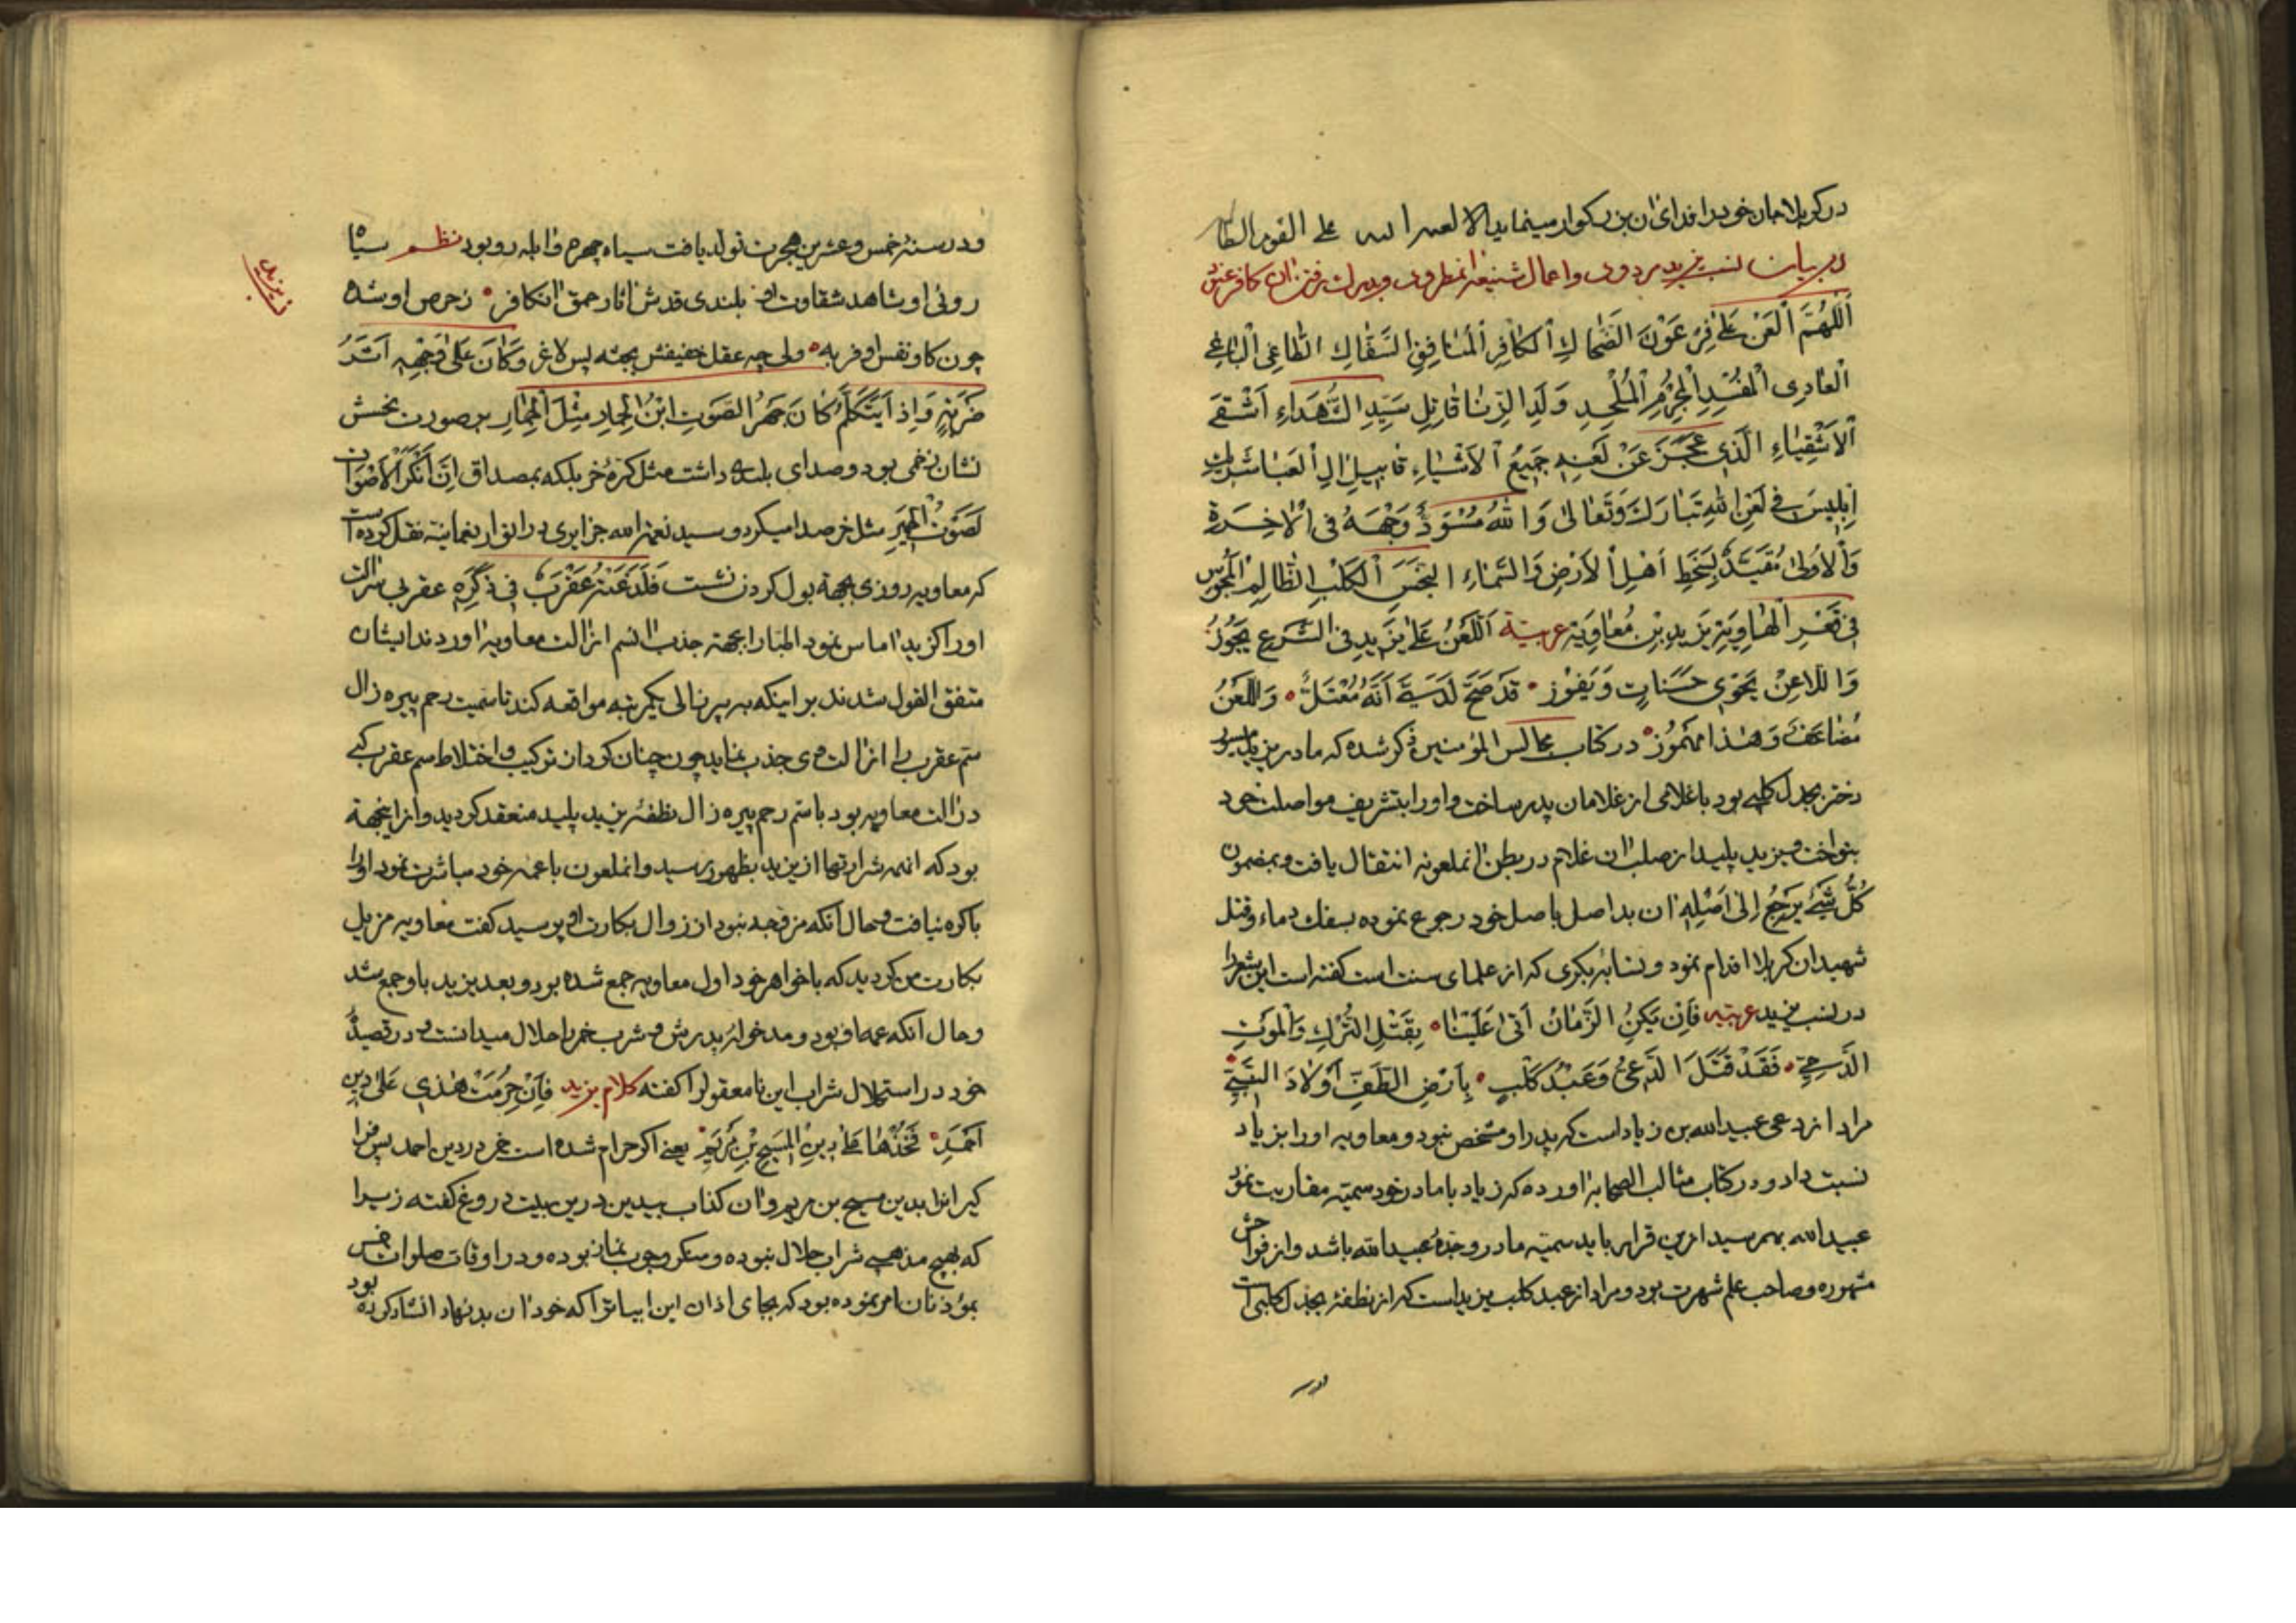 در کربلا جان خود را فدای آن بزرکوار مینماید الا لعنة الله علی القوم الظا
در بیان نسب یزید مردود واعمال شنیعه آنمطرود ودرک رفتن آن کافر عنید
اَللّٰهُمَّ الْعَنْ عَلٰی فِرْعَوْنَ الضَّحّاكِ الْكافِرِ الْمُنافِقِ السَّفّاكِ الطّاغِی الْباغِی
الْعادِی الْمُفْسِدِ الْمُجْرِمِ الْمُلْحِدِ وَلَدِ الزِّنا قاتِلِ سَیِّدِ الشُّهَداءِ اَشْقَی
الْاَشْقِیاءِ الَّذِی عَجَزَ عَنْ لَعْنِهِ جَمِیعُ الْاَشْیاءِ قابِیلِ الِ الْعَبا شَرِیكِ
اِبْلِیسَ فِی لَعْنِ اللهِ تَبارَكَ وَتَعالٰی وَاللهُ مُسَوِّدُ وَجْهَهُ فِی الْاٰخِرَةِ
وَالْاُولٰی مُقَیَّدٌ بِسَخَطِ اَهْلِ الْاَرْضِ وَالسَّماءِ النَّجَسِ الْكَلْبِ الظّالِمِ الْمَحْبُوسِ
فِی قَعْرِ الْهاوِیَةِ یَزِیدِ بْنِ مُعاوِیَةَ عربیّة اَللَّعْنُ عَلٰی یَزِیدَ فِی الشَّرْعِ یَجُوزُ
وَاللّاعِنُ یَحْوِی حَسَناتٍ وَیَفُوز قَدْ صَحَّ لَدَیَّ اَنَّهُ مُعْتَلٌّ وَاللَّعْنُ
مُضاعَفٌ وَهٰذا مَهْمُوز در کتاب مجالس المؤمنین ذکر شده که مادر یزید میسون
دختر بجدل کلبی بود با غلامی از غلامان پدر ساخت واو را بتشریف مواصلت خود
بنواخت ویزید پلید از صلب آن غلام در بطن آنملعونه انتقال یافت وبمضمون
كُلُّ شَیْءٍ یَرْجِعُ اِلٰی اَصْلِهِ آن بد اصل باصل خود رجوع نموده بسفك دماء وقتل
شهیدان کربلا اقدام نمود ونسابه بکری که از علمای سنت است کفته است این شعر را
در نسب یزید عربیّه فَاِنْ یَکُنِ الزَّمانُ اَتٰی عَلَیْنا بِقَتْلِ التُّرْكِ وَالْمَوْتِ
الْوَحِیِّ فَقَدْ قَتَلَ الدَّعِیُّ وَعَبْدُ كَلْبٍ بِاَرْضِ الطَّفِّ اَوْلادَ النَّبِیِّ
مراد از دعی عبیدالله بن زیاد است که پدر او مشخص نبود ومعاویه او را بزیاد
نسبت داد ودر کتاب مثالب الصحابه آورده که زیاد با مادر خود سمیّه مقاربت نمود
عبیدالله بهم رسید ازین قرار باید سمیّه مادر وجدّهٔ عبیدالله باشد واز فواحش
مشهوره وصاحب علم شهرت بود ومراد از عبد کلب یزید است که از نطفهٔ بجدل کلبی است
در
ودر سنهٔ خمس وعشرین هجرت تولد یافت سیاه چهره وآبله رو بود نظم سیاه
روئی او شاهد شقاوت او بلندی قدش آثار حمق آنکافر زحرص او شده
چون کاو نفس او فربه ولی چه عقل خفیفش بجثه پس لاغر وَكانَ عَلٰی وَجْهِهِ اَثَرُ
ضَرْبَةٍ وَاِذا یَتَكَلَّمُ كانَ جَهْرُ الصَّوْتِ ابْنُ الْحِمارِ مِثْلَ الْحِمارِ بر صورت نحسش
نشان زخمی بود وصدای بلند داشت مثل کرهٔ خر بلکه بمصداق اِنَّ اَنْكَرَ الْاَصْواتِ
لَصَوْتُ الْحَمِیرِ مثل خر صدا میکرد وسید نعمة الله جزایری در انوار نعمانیّه نقل کرده است
که معاویه روزی بجهة بول کردن نشست فَلَدَغَتْهُ عَقْرَبٌ فِی ذَكَرِهِ عقربی سر آلت
او را کزید آماس نمود اطبا را بجهة جذب السم از آلت معاویه آوردند ایشان
متفق القول شدند بر اینکه به پیر زالی یکمرتبه مواقعه کند تا سمیت رحم پیره زال
سمّ عقرب را از آلت وی جذب نماید چون چنان کرد آن ترکیب واختلاط سم عقرب که
در آلت معاویه بود با سم رحم پیره زال نطفهٔ یزید پلید منعقد کردید واز اینجهة
بود که آنهمه شرارتها از یزید بظهور رسید وآنملعون با عمه خود مباشرت نمود او را
باکره نیافت وحال آنکه مزوجه نبود از زوال بکارت او پرسید کفت معاویه مزیل
بکارت من کردید که با خواهر خود اول معاویه جمع شده بود وبعد یزید با او جمع شد
وحال آنکه عمه او بود ومدخولهٔ پدرش وشرب خمر را حلال میدانست ودر قصیدهٔ
خود در استحلال شراب این نامعقول را کفته کلام یزید فَاِنْ حُرِّمَتْ هٰذِی عَلٰی دِینِ
اَحْمَدَ فَخُذْها عَلٰی دِینِ الْمَسِیحِ بْنِ مَرْیَمَ یعنی اکر حرام شده است خمر در دین احمد پس فرا
کیر آنرا بدین مسیح بن مریم وآن کذاب بیدین درین بیت دروغ کفته زیرا
که بهیچ مذهبی شراب حلال نبوده ومنکر وجوب نماز بوده ودر اوقات صلوات خمس
بمؤذنان امر نموده بود که بجای اذان این ابیات را که خود آن بدنهاد انشاد کرده بود